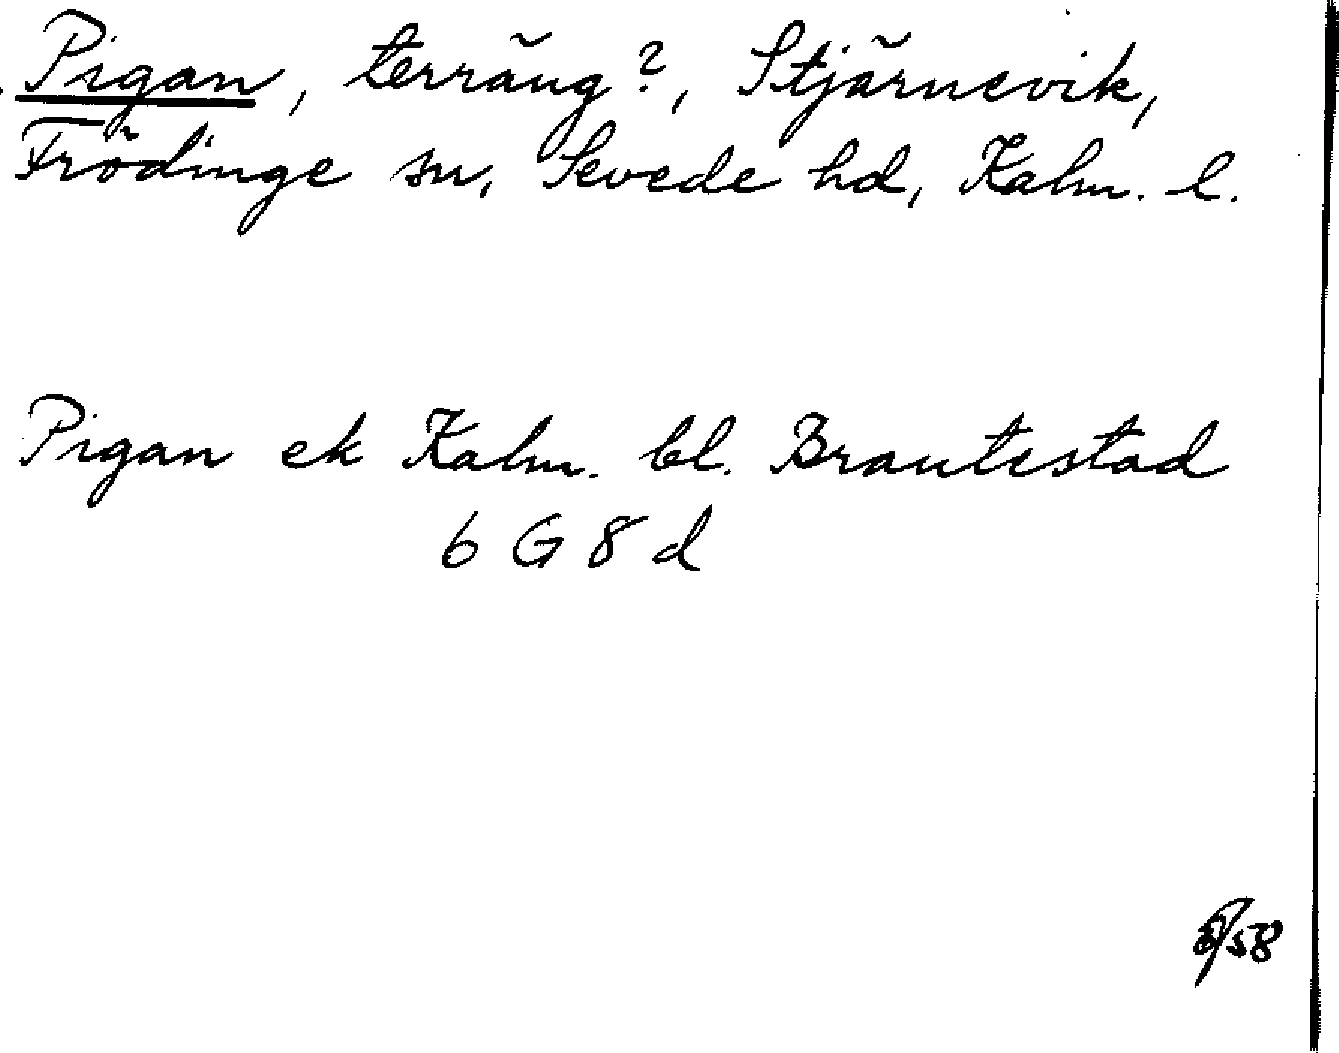 Pigan, terräng?, Stjärnevik,
Frödinge sn, Sevede hd, Kalm. l.
Pigan ek Kalm. bl. Brantestad
6 G 8 d